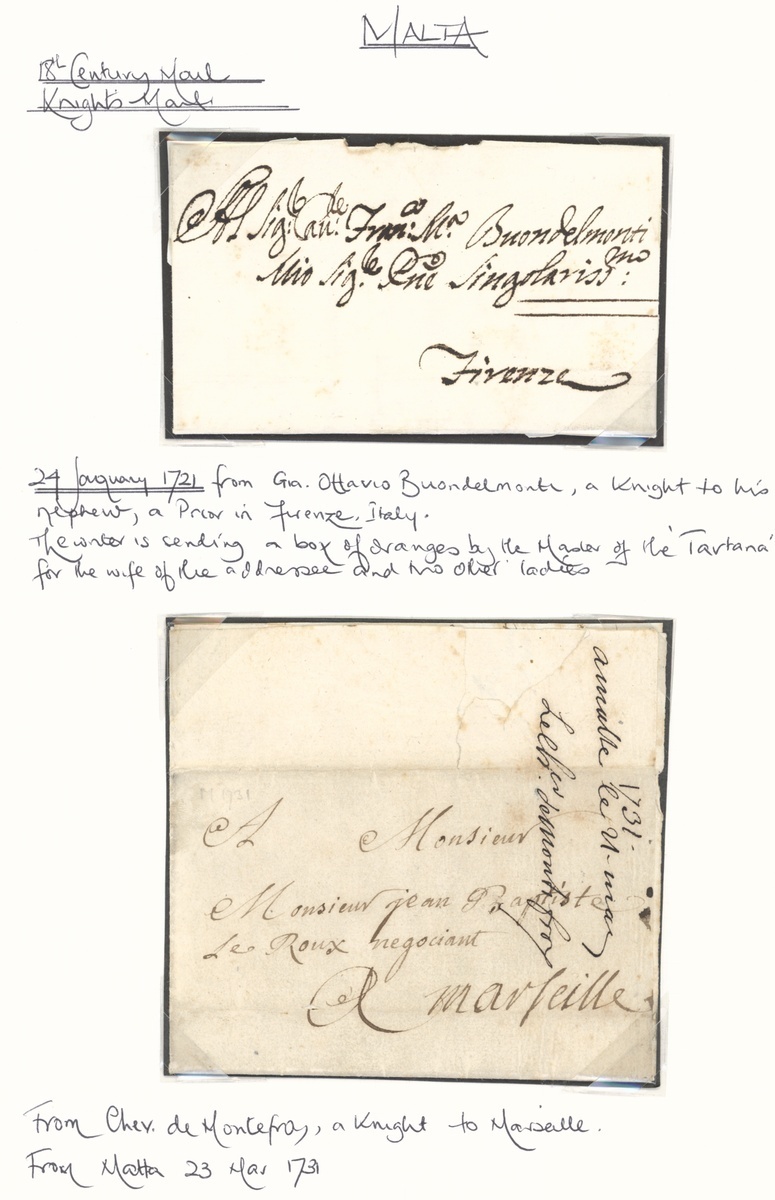 MALTA
18th Century Mail
Knights Mail
Al Sig:re Cau:re Fran:co M:a Buondelmonti
Mio Sig:re Pne Singolariss:mo
Firenze
24 January 1721 from Gia. Ottavio Buondelmonte, a Knight to his
nephew, a Prior in Firenze, Italy.
The writer is sending a box of oranges by the Master of the 'Tartana'
for the wife of the addressee and two other ladies
1731.
amalte le mar
Le Ch.er de
M 1731
A Monsieur
Monsieur jean Baptiste
Le Roux negociant
A marseille
From Chev. de Montefroy, a Knight to Marseille.
From Malta 23 Mar 1731